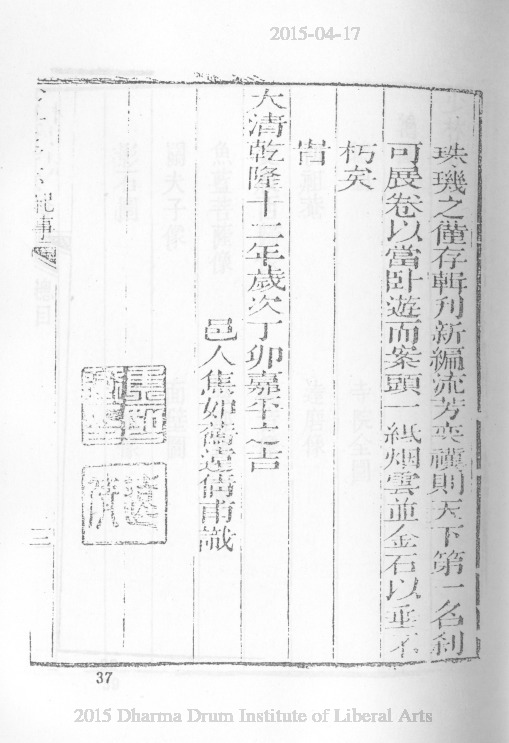 2015-04-17
珠璣之僅存輯刊新編流芳奕禩則天下第一名刹
可展卷以當卧遊而案頭一紙烟雲並金石以垂不
朽矣
旹
大清乾隆十二年歲次丁卯嘉平之吉
邑人焦如蘅蘧僊甫識
紀事
二
37
2015 Dharma Drum Institute of Liberal Arts